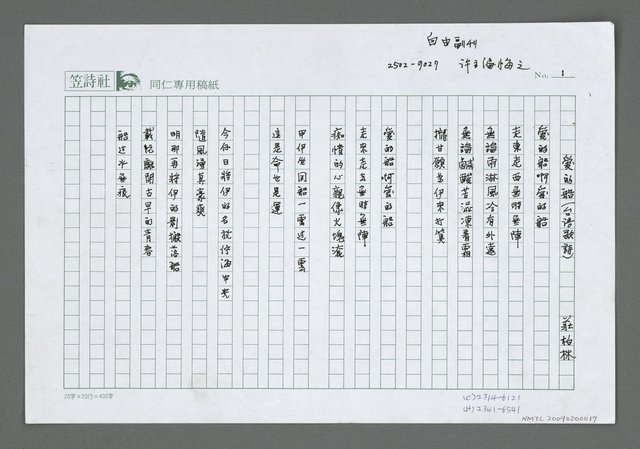 自由副刊
2502-9027 許王海梅之
笠詩社 同仁專用稿紙
No. 1
愛的船(台語歌詩) 莊柏林
愛的船啊愛的船
走東走西無時無陣
無論雨淋風冷有外遠
無論鹹酸苦澀凍着霜
攏甘願為伊來打算
愛的船啊愛的船
走來走去無時無陣
痴情的心親像火塊滾
甲伊坐同船一雲過一雲
這是命也是運
今仔日將伊的名放佇海中央
隨風湧真豪爽
明那再將伊的影搬落船
載阮離開古早的青春
船过水無痕
20字×20行=400字
(O)2314-6121
(H)2341-6541
NMTL 20090200017